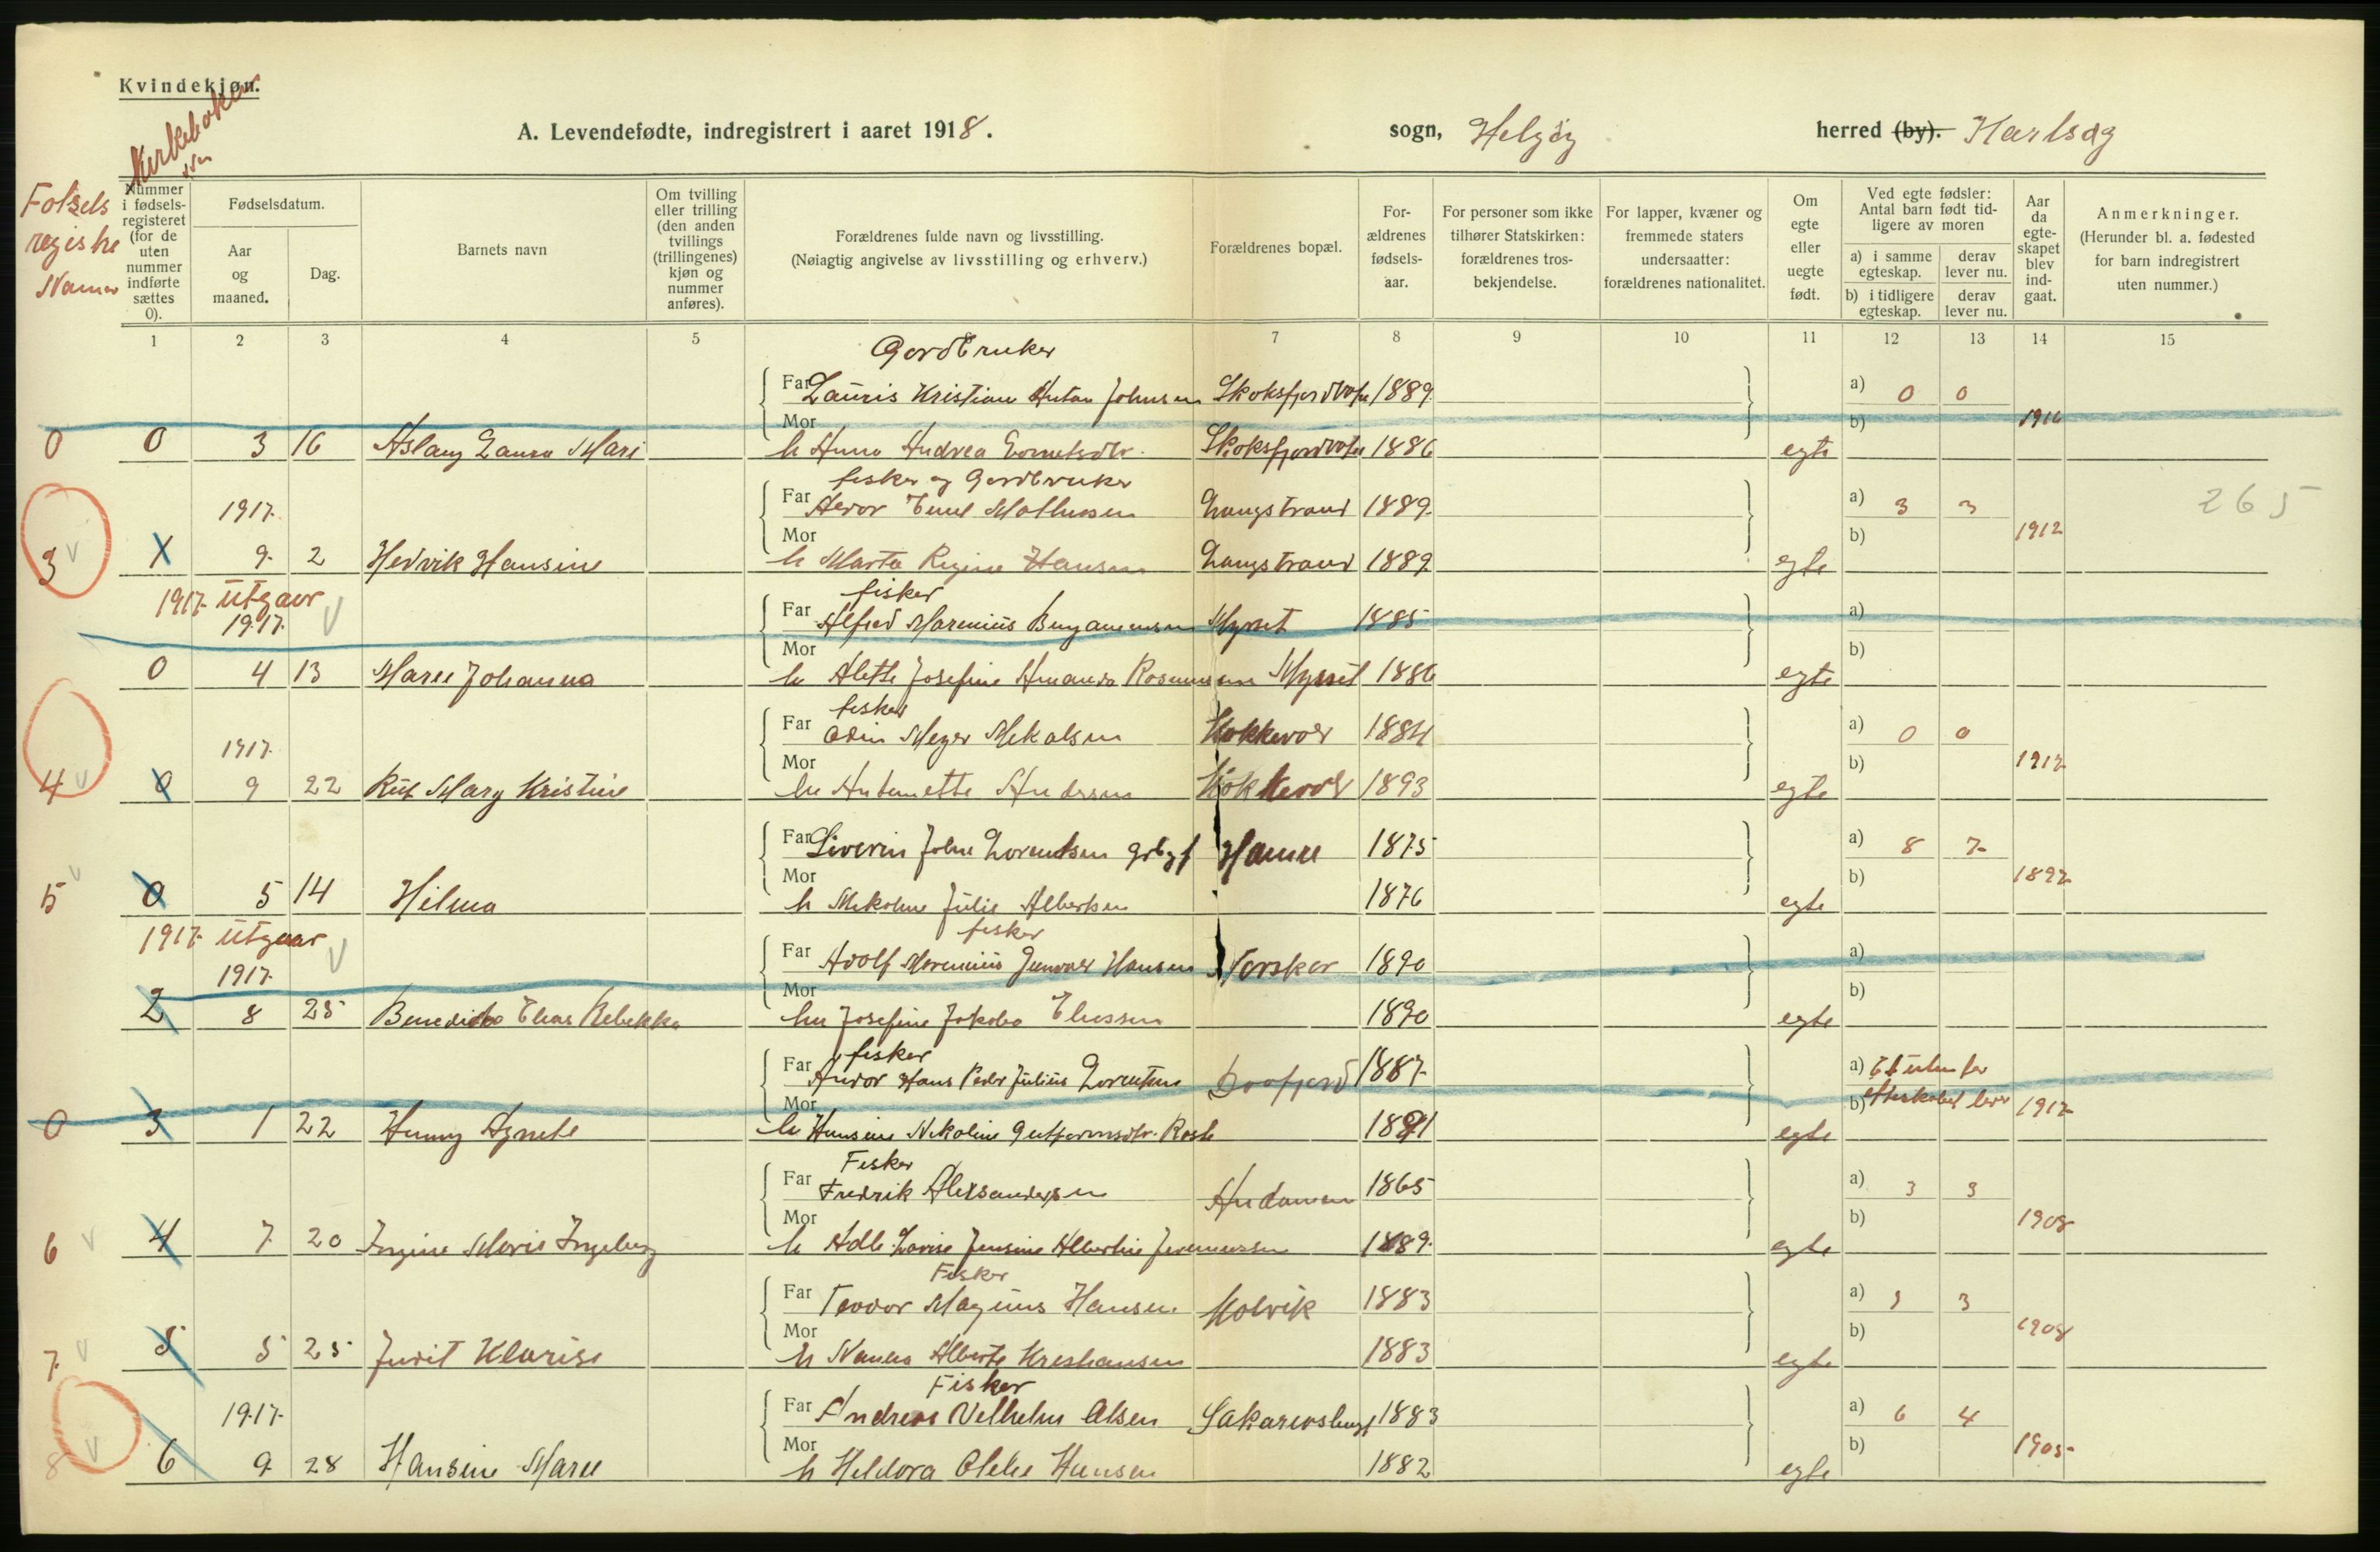 Kvindekjøn.
Kirkeboken
A. Levendefødte, indregistrert i aaret 1918.
sogn, Helgøy
herred (by). Karlsøy
Fødsels
registre
Numer
Nummer i fødsels-registeret (for de uten nummer indførte sættes 0).
Fødselsdatum.
Aar og maaned.
Dag.
Barnets navn
Om tvilling eller trilling (den anden tvillings (trillingenes) kjøn og nummer anføres).
Forældrenes fulde navn og livsstilling.
(Nøiagtig angivelse av livsstilling og erhverv.)
Forældrenes bopæl.
For-ældrenes fødsels-aar.
For personer som ikke tilhører Statskirken: forældrenes tros-bekjendelse.
For lapper, kvæner og fremmede staters undersaatter: forældrenes nationalitet.
Om egte eller uegte født.
Ved egte fødsler: Antal barn født tid-ligere av moren
a) i samme egteskap.
derav lever nu.
b) i tidligere egteskap.
derav lever nu.
Aar da egte-skapet blev ind-gaat.
Anmerkninger.
(Herunder bl. a. fødested for barn indregistrert uten nummer.)
1 2 3 4 5 7 8 9 10 11 12 13 14 15
Gordbruker
Far Lauris Kristian Anton Johnsen Skoksfjordvatn 1889 a) 0 0
Mor b) 1916
0 0 3 16 Aslaug Laura Mari h Anna Andrea Skoksfjordvatn 1886 egte
fisker og Gordbruker
1917. Far Emil Mathisen Langstrand 1889 a) 3 3 265
Mor b) 1912
3 1 9. 2 Hedvik Hansine h Marta Regine Hansen Langstrand 1889 egte
1917. utgaar fisker
1917. Far Alfred Marenius Benjamensen Mysset 1885 a)
Mor b)
0 4 13 Marie Johanna h Alette Josefine Amanda Rasmussen Mysset 1886 egte
fisker
1917. Far Odin Meyer Mikalsen 1884 a) 0 0
Mor b) 1917
4 0 9 22 Rut Mary Kristine h Antonette Andersen 1893 egte
Far Severin Johan Lorentsen Hamre 1875 a) 8 7
Mor b) 1897
5 0 5 14 Hilma h Nikoline Julie Albertsen 1876 egte
1917. utgaar fisker
1917. Far Adolf Marenius Hansen Torsker 1890 a)
Mor b)
2 8 25 Benedikte Elias Rebekka h Josefine Jakoba Eliassen 1890 egte
fisker
Far Andor Hans Peder Julius Lorentsen 1887 a)
Mor b) 1917
0 3 1 22 Agnete h Hansine Nikoline 1891 egte
Fisker
Far Fredrik Aleksandersen Andamen 1865 a) 3 3
Mor b) 1908
6 4 7. 20 Ingine Maris Ingeborg h Lovise Jensine Albertine 1889. egte
Fisker
Far Teodor Magnus Hansen Molvik 1883 a) 3 3
Mor b) 1908
7. 5 5 25 Judit Klarise h Nanna Alberte Kristiansen 1883 egte
Fisker
1917. Far Andreas Vilhelm Olsen 1883 a) 6 4
Mor b) 1905
8 6 9. 28 Hansine Marie h Heldora Hansen 1882 egte